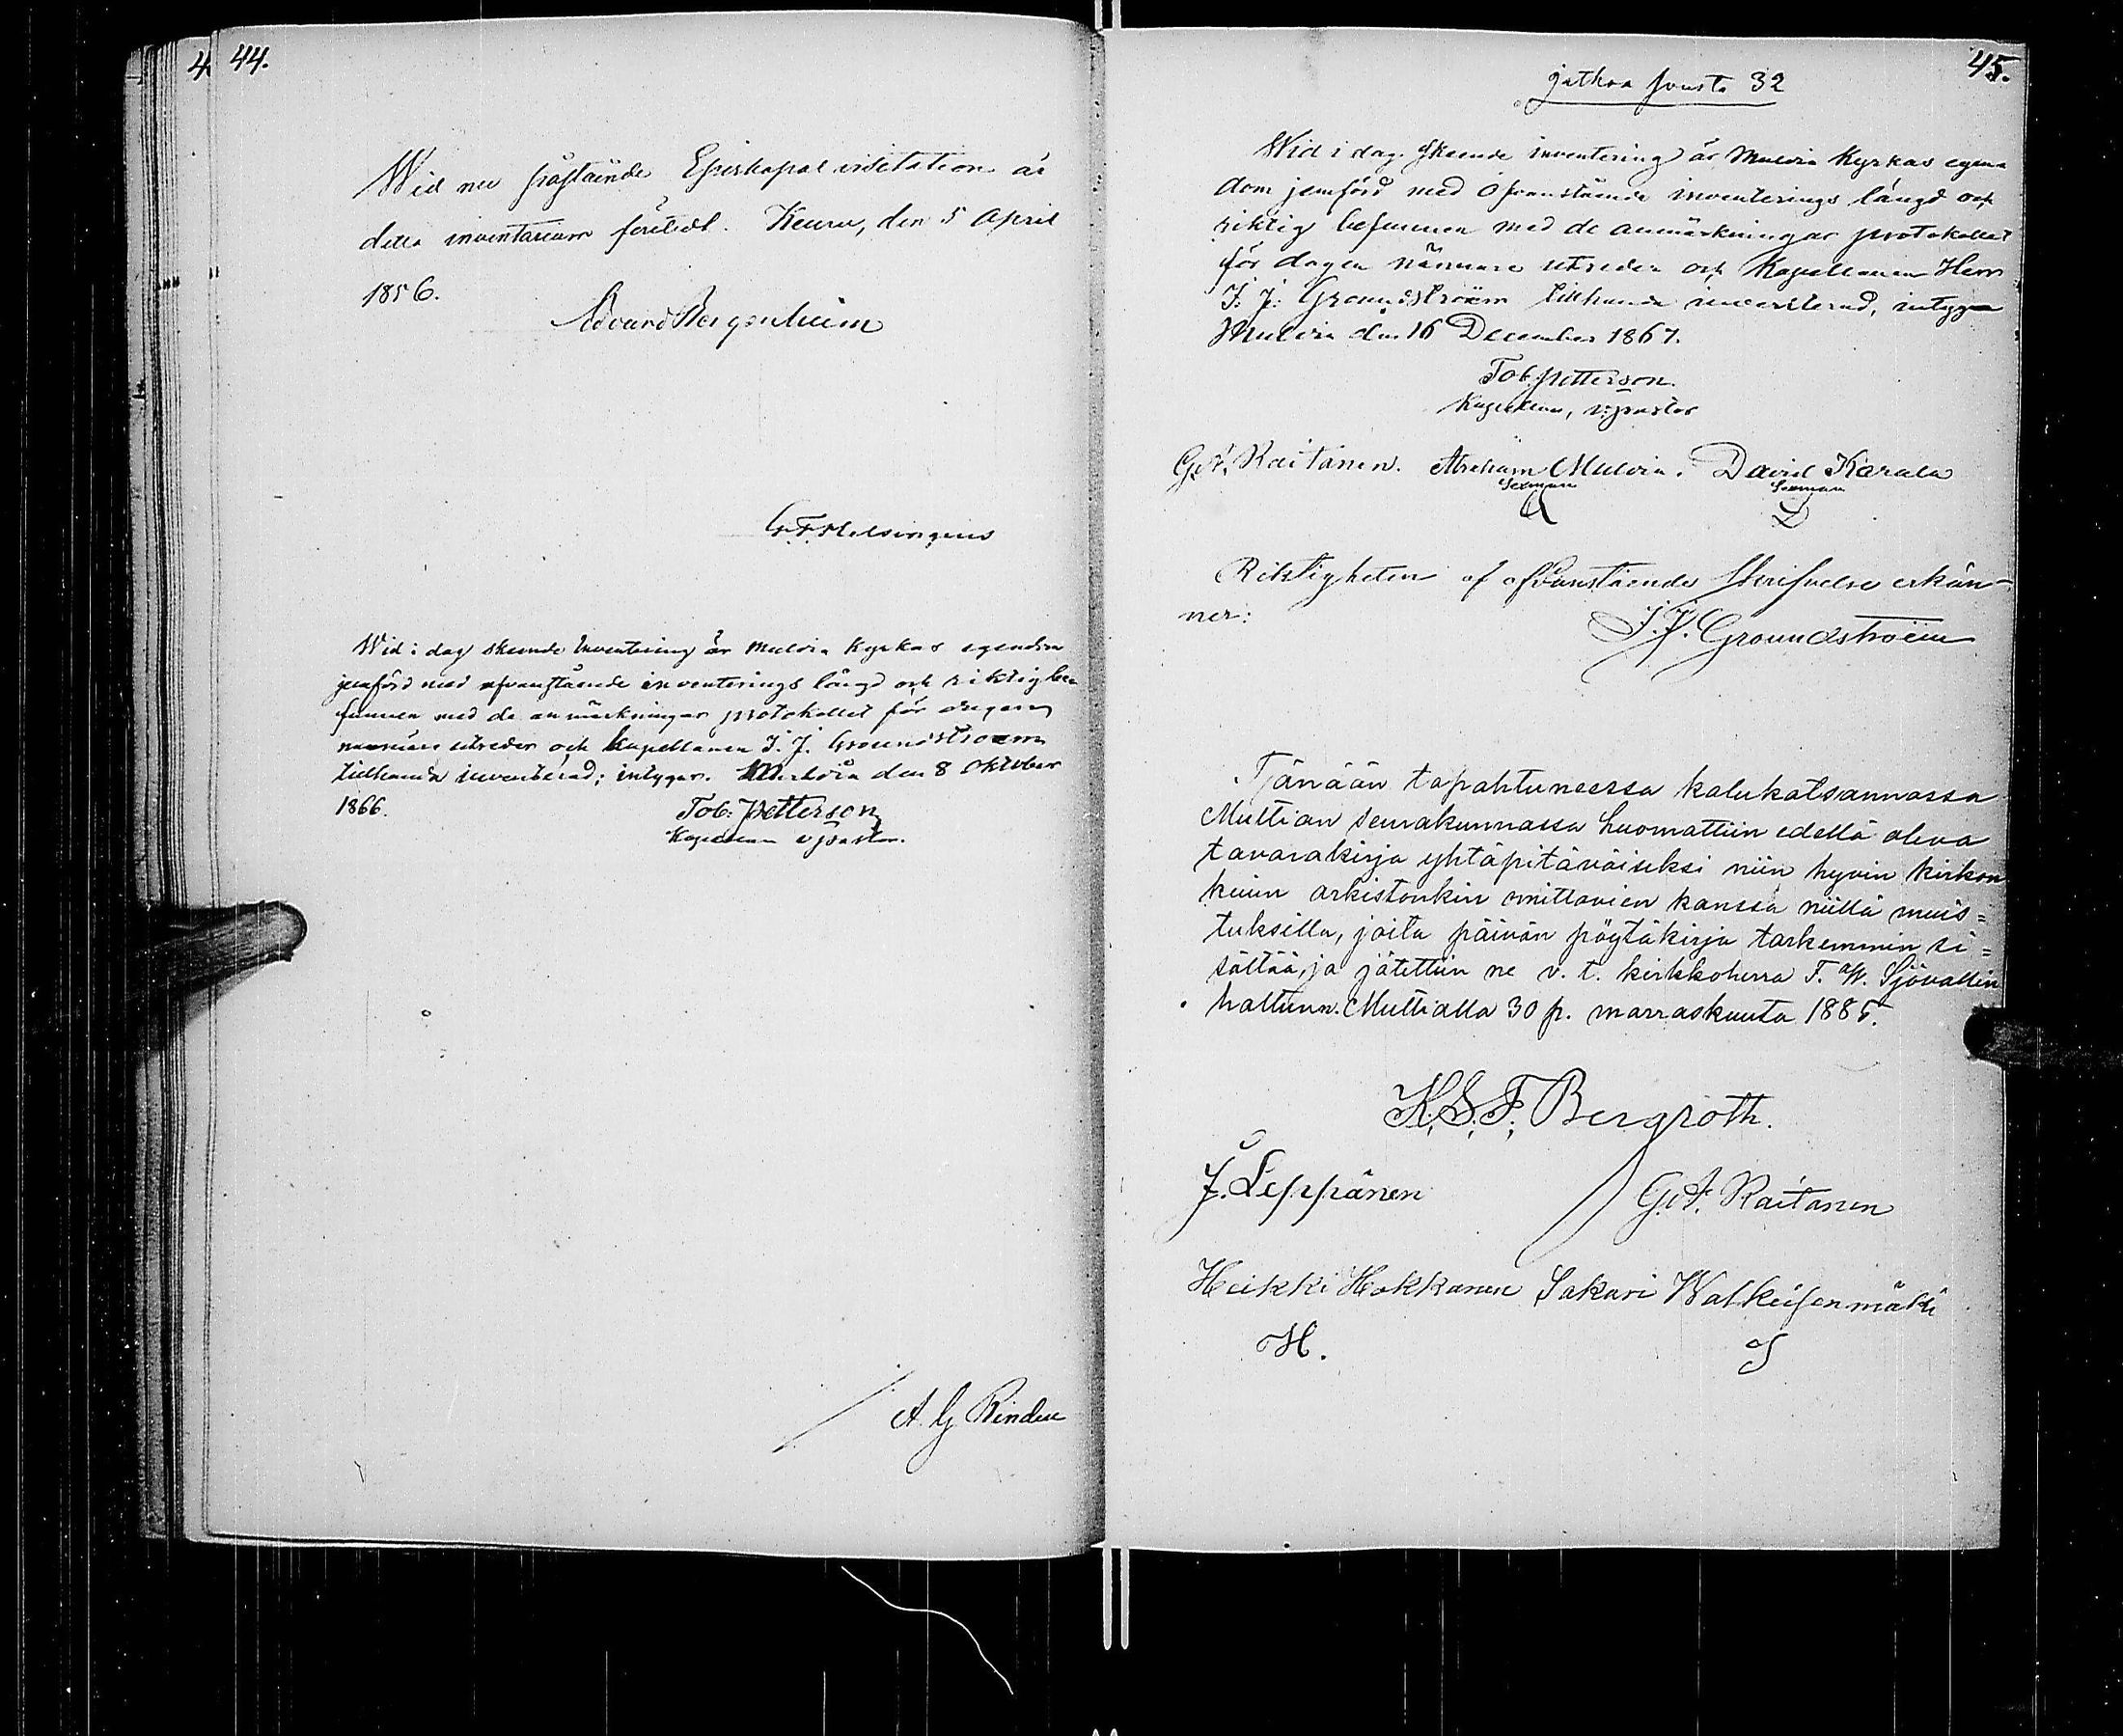 44.
Wid nu påstående Episkopal visitation är
detta inventarium företedt. Keuru, den 5 April
1856.
Edvard Bergenheim
G. F. Helsingius
Wid i dag skeende Inventering är Multia Kyrkas egendom
jemförd med ofvanstående inventerings längd och riktig be-
funnen med de anmärkningar protokollet för dagen
närmare utreder och Kapellanen I. J. Groundstroem
tillhanda inventerad; intygar. Multia den 8 Oktober
1866.
Tob: Petterson
Kapellan v pastor.
A. G. Rinden
45.
jatkoa sivusta 32
Wid i dag skeende inventering är Multia Kyrkas egen-
dom jemförd med ofvanstående inventerings längd och
riktig befunnen med de anmärkningar protokollet
för dagen närmare utreder och Kapellanen Herr
I. J. Groundstroem tillhanda inventerad, intygar
Multia den 16 December 1867.
Tob. Petterson.
Kapellan, v: pastor
G. A. Raitanen. Abraham Multia. David Karala
Sexman Sexman
A D
Riktigheten af ofvanstående skrifvelse erkän-
ner:
I. J. Groundstroem
Tänään tapahtuneessa kalukatsannossa
Multian seurakunnassa huomattiin edellä oleva
tavarakirja yhtäpitäväiseksi niin hyvin kirkon
kuin arkistonkin omittavien kanssa niillä muis=
tuksilla, joita päivän pöytäkirja tarkemmin si=
sältää, ja jätettiin ne v. t. kirkkoherra F. W. Sjövallin
haltuun. Multialla 30 p. marraskuuta 1885.
K. S. F. Bergroth.
J. Leppänen G. A. Raitanen
Heikki Hokkanen Sakari Walkeisenmäki
H. S